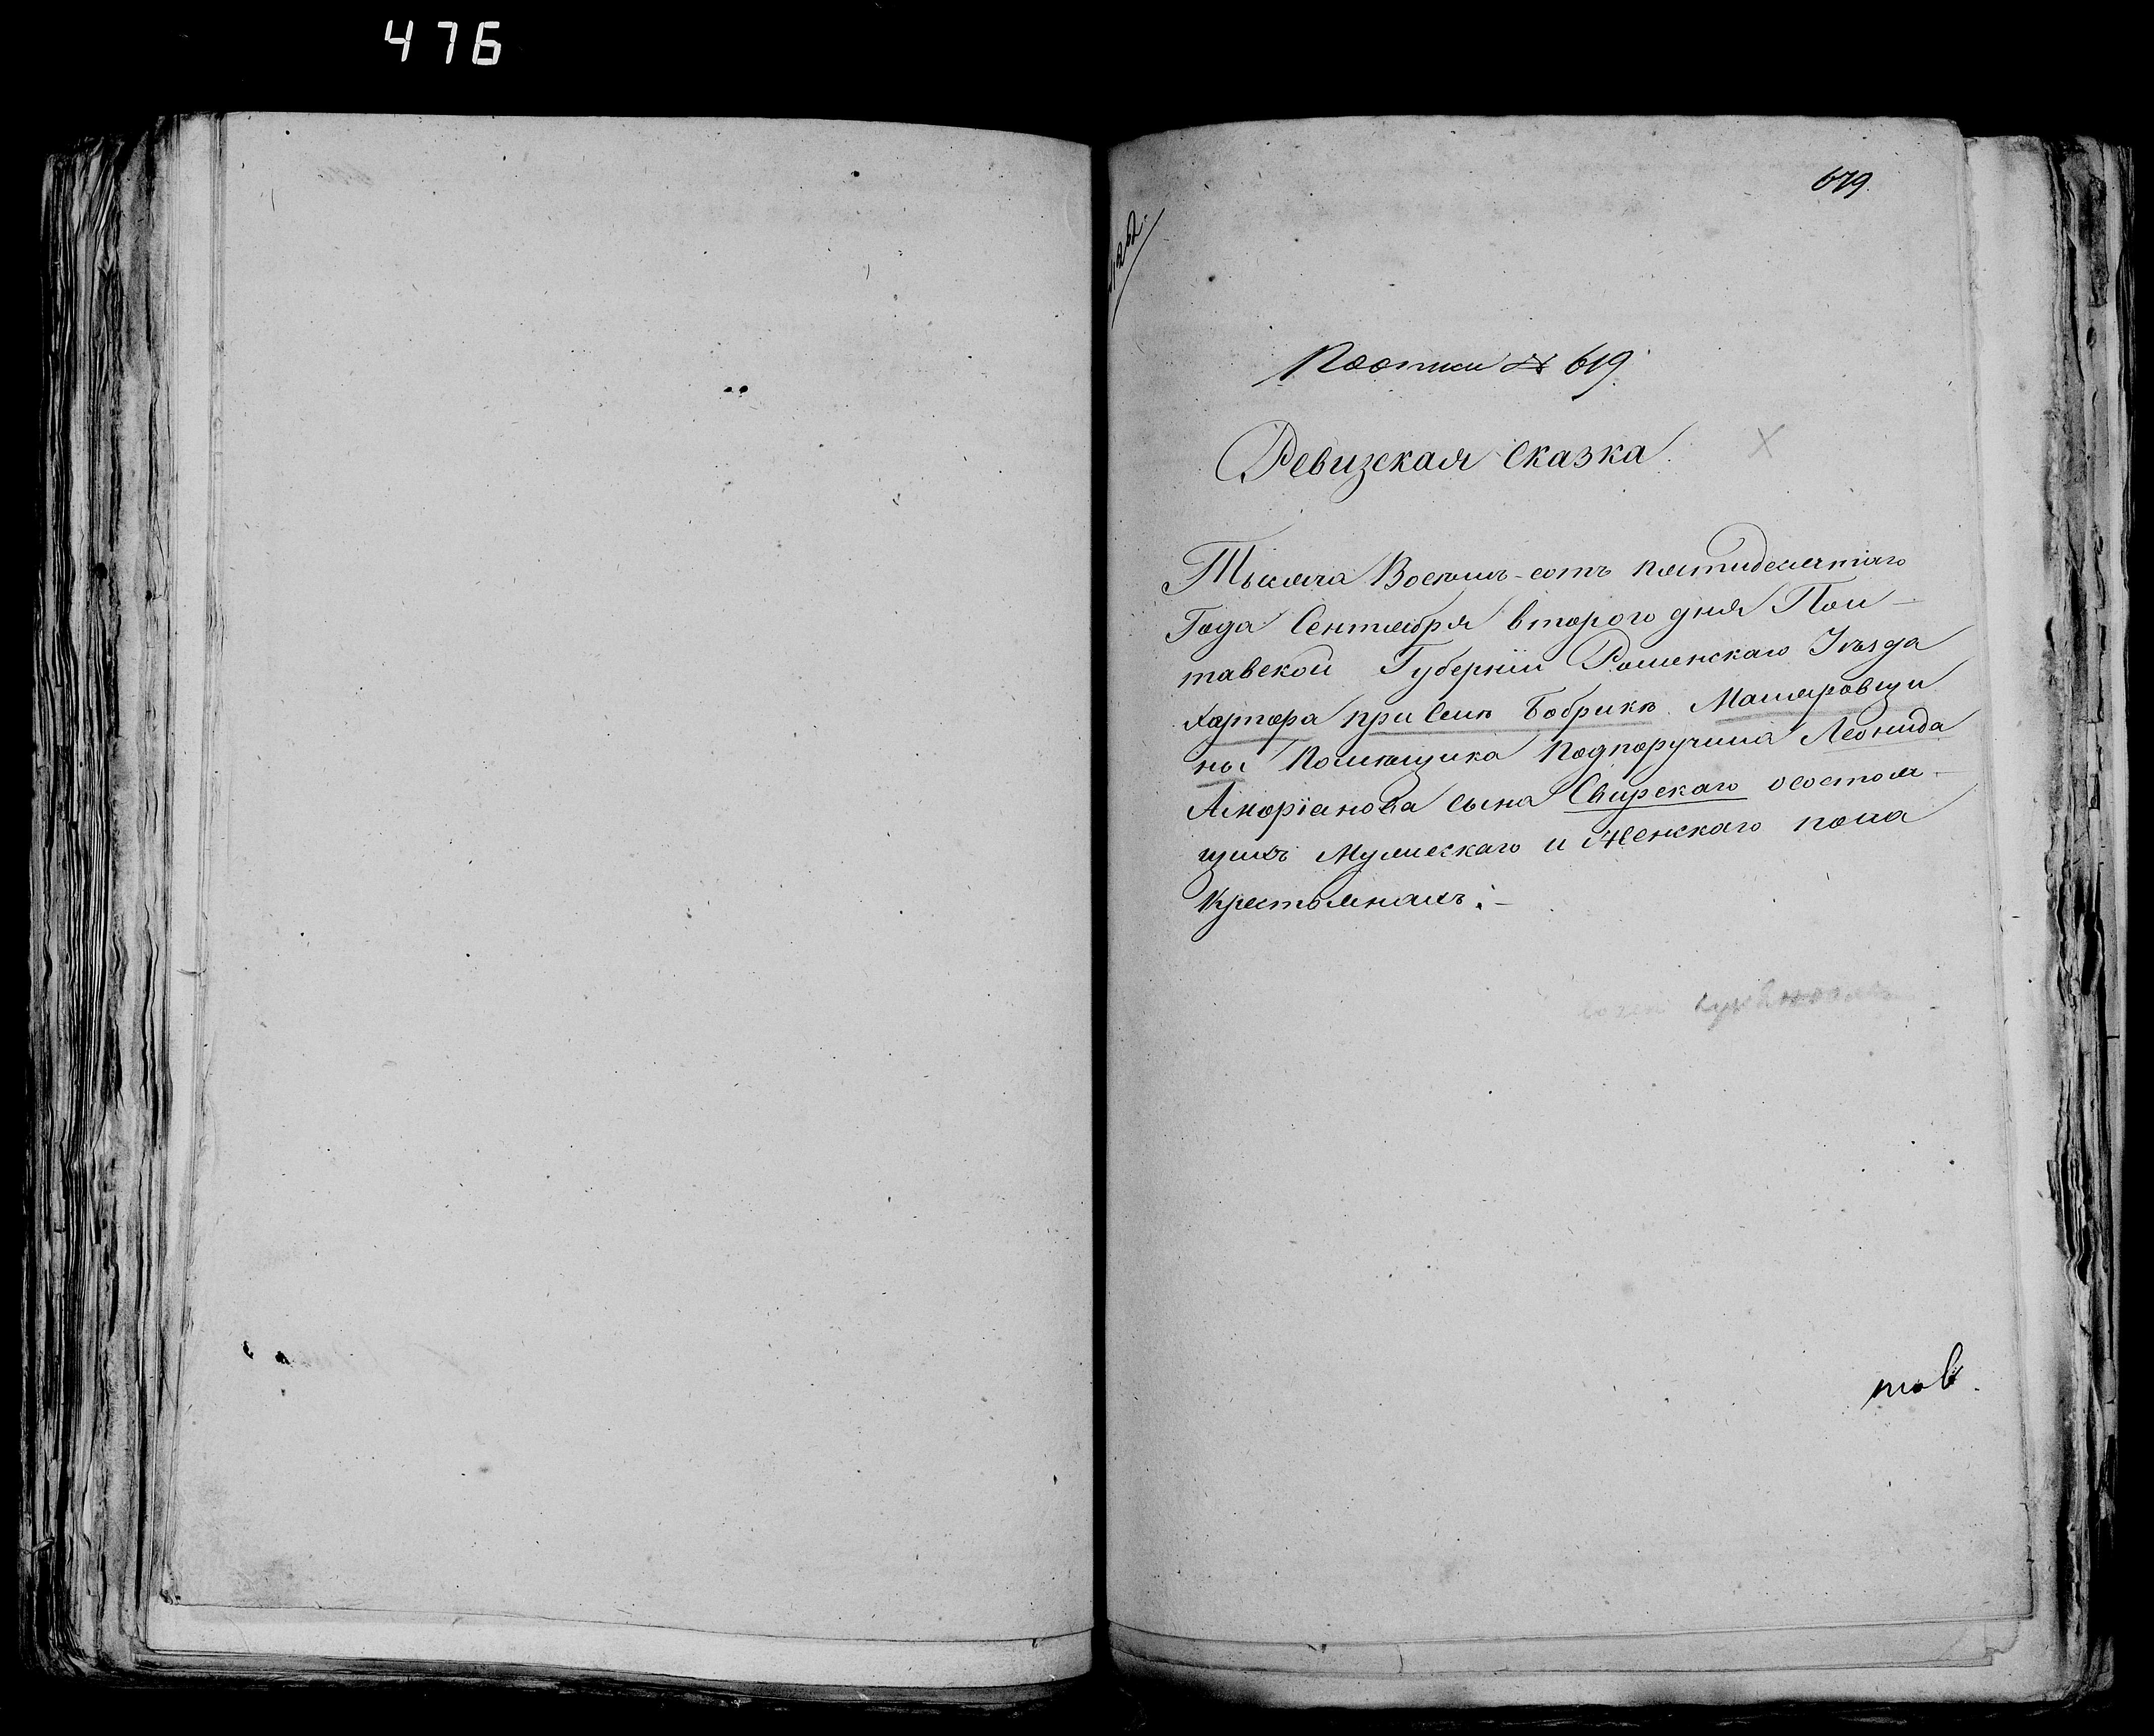 476
679.
По описи № 619.
Ревизская Сказка.
Тысяча Восемь-сотъ пятидесятаго
Года Сентября второго дня Пол-
тавской Губерніи Роменскаго Уѣзда
Хутора при Селѣ Бобрикѣ Маляровщи
ны Помѣщика Подпоручика Леонида
сына Свирскаго о состоя-
щихъ Мужескаго и Женскаго пола
Крестьянахъ.-